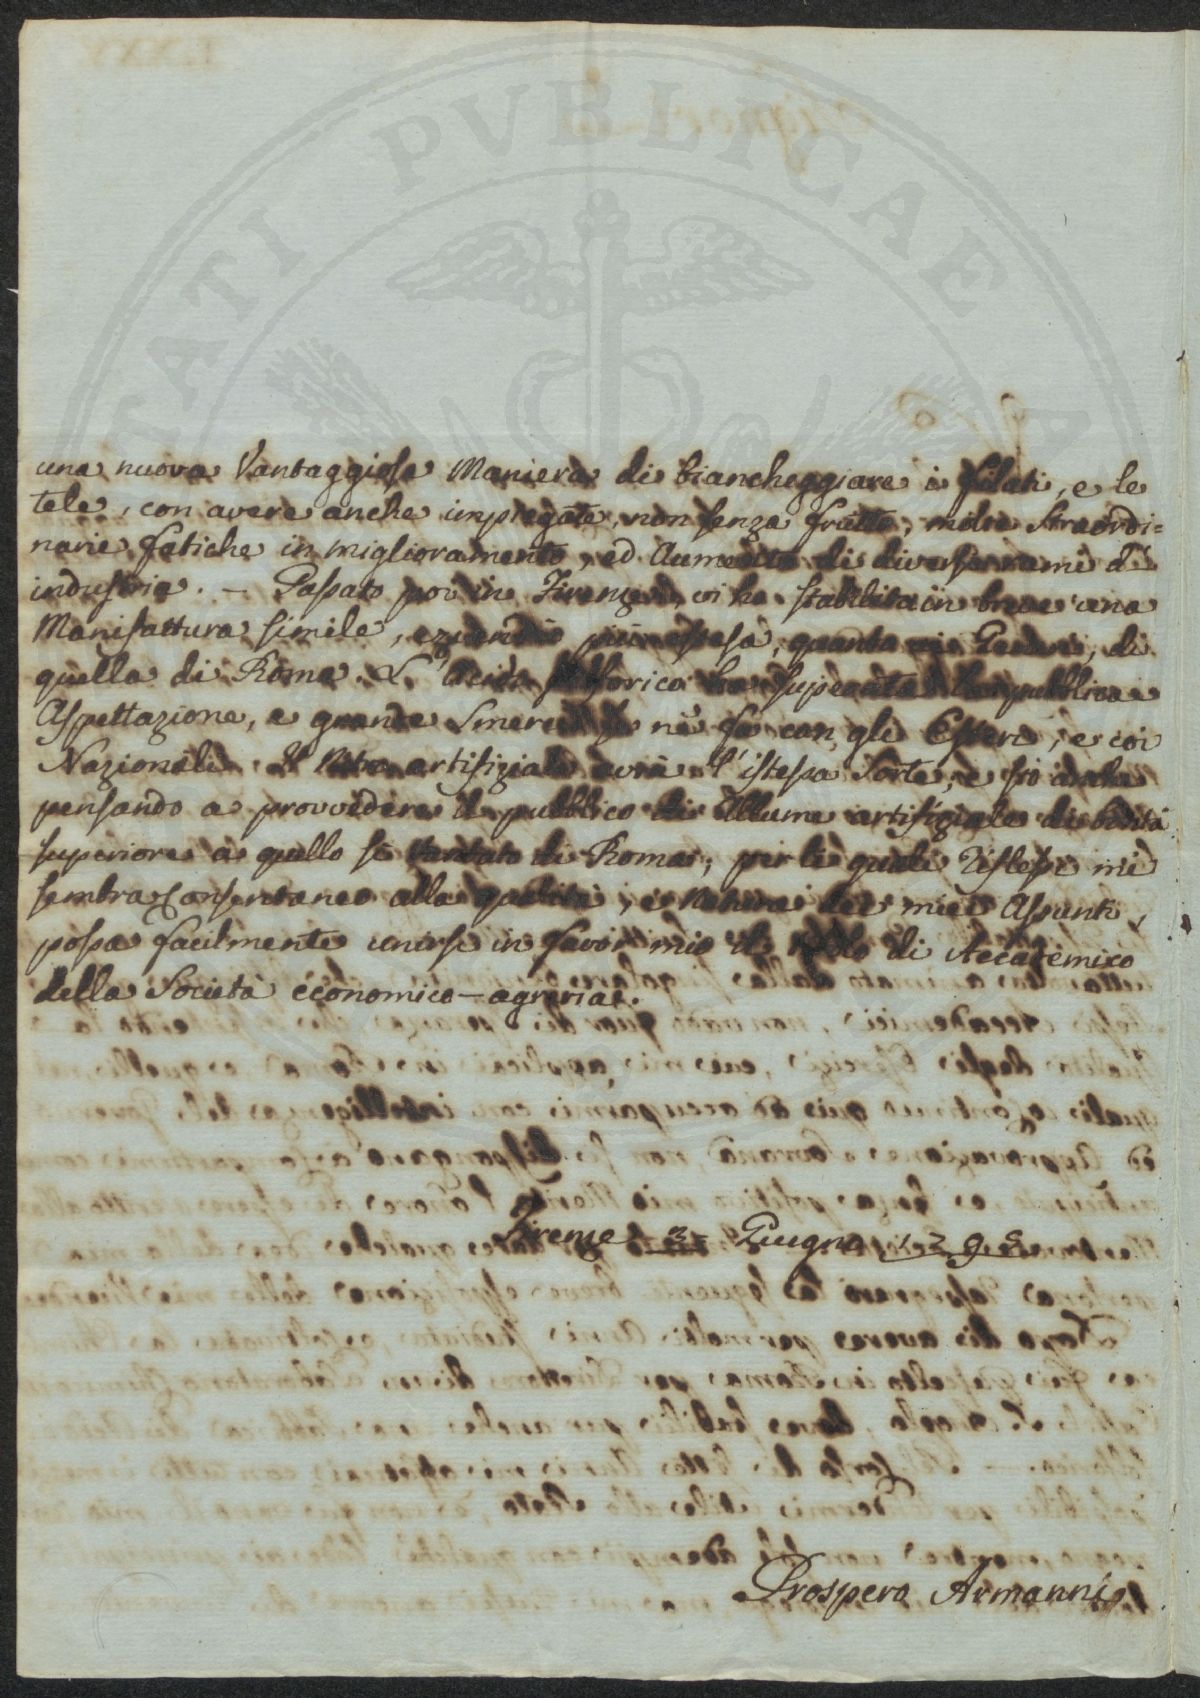 PUBLICAE
una nuova Vantaggiosa Maniera di biancheggiare i filati, e le
tele, con avere anche impiegate, non senza frutto, molte straordi=
narie fatiche in miglioramento, ed Aumento di diversi rami d'
industria. — Passato poi in Firenze vi ho stabilita in breve una
Manifattura simile, più estesa, quanto di
quella di Roma. L'acido solforico ha superata la pubblica
Aspettazione, e grande Smercio se nè fa con gli Esteri, e coi
Nazionali. Il Nitro artifiziale avrà l'istessa Sorte, e sto anche
pensando a provvedere il pubblico di Allume artifiziale di bontà
superiore a quello sì vantato di Roma; per le quali mi
sembra Consentaneo alla qualità, e Natura dei miei Assunti,
possa facilmente unirsi in favor mio il di Accademico
della Società economico—agraria.
Firenze 3 Giugno 1795
Prospero Armanni